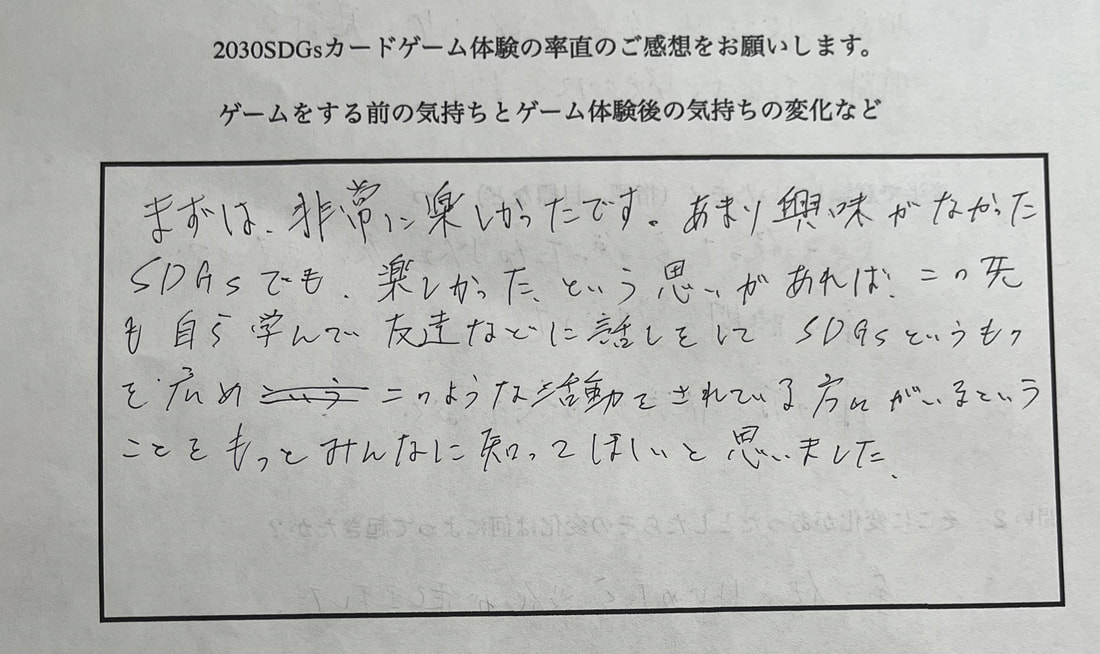 2030SDGsカードゲーム体験の率直のご感想をお願いします。
ゲームをする前の気持ちとゲーム体験後の気持ちの変化など
まずは、非常に楽しかったです。あまり興味がなかった
SDGsでも、楽しかった、という思いがあれば、この先
も自ら学んで友達などに話しをして SDGsというもの
を広め このような活動をされている方々がいるという
ことをもっとみんなに知ってほしいと思いました。
問い2 そこに変化があったとしたらその変化は何によって起きたか?